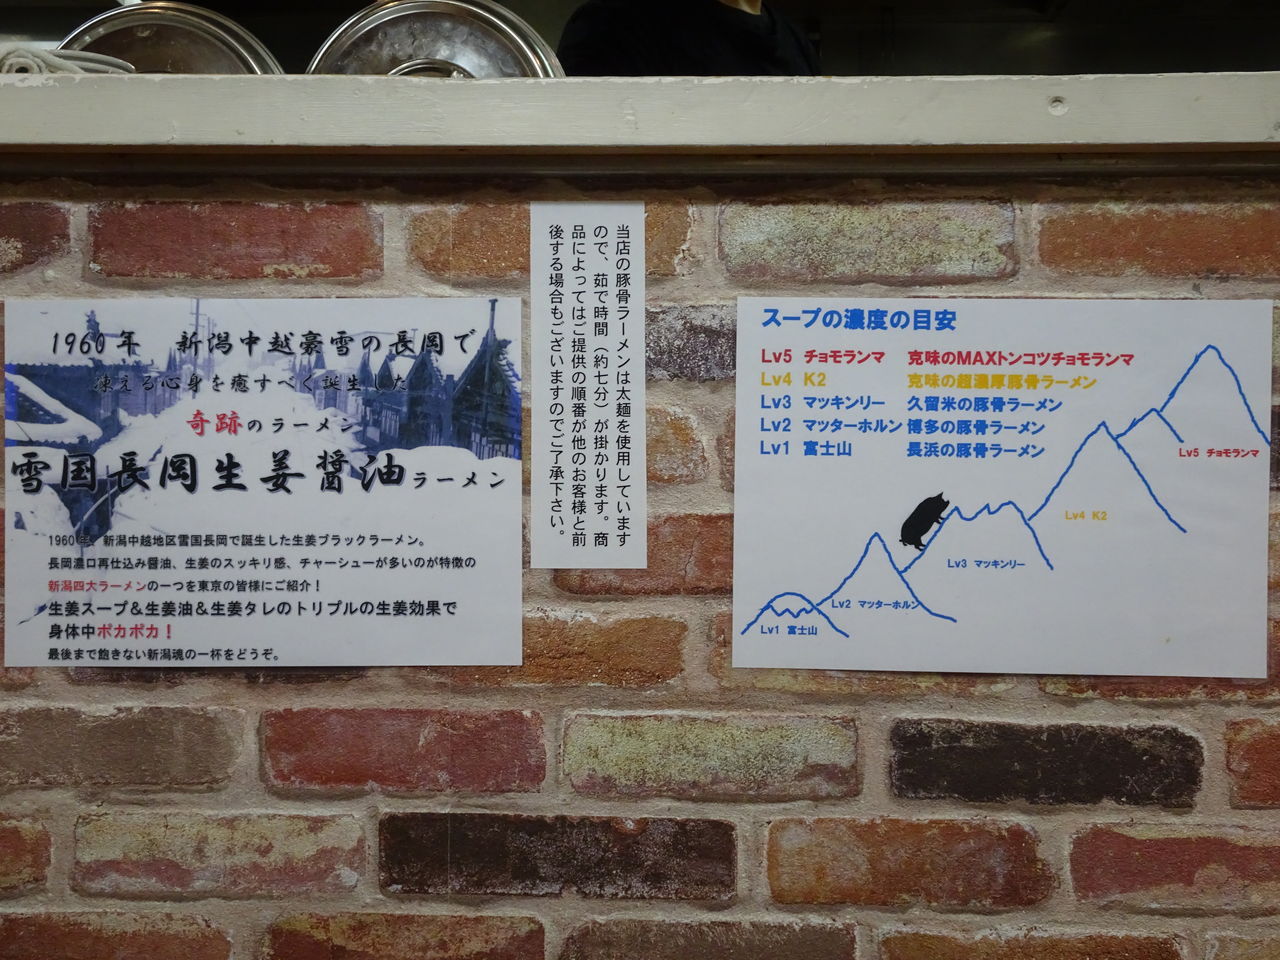 1960年 新潟中越豪雪の長岡で
凍える心身を癒すべく誕生した
奇跡のラーメン
雪国長岡生姜醤油ラーメン
1960年、新潟中越地区雪国長岡で誕生した生姜ブラックラーメン。
長岡濃口再仕込み醤油、生姜のスッキリ感、チャーシューが多いのが特徴の
新潟四大ラーメンの一つを東京の皆様にご紹介！
生姜スープ&生姜油&生姜タレのトリプルの生姜効果で
身体中ポカポカ！
最後まで飽きない新潟魂の一杯をどうぞ。
当店の豚骨ラーメンは太麺を使用しています
ので、茹で時間（約七分）が掛かります。商
品によってはご提供の順番が他のお客様と前
後する場合もございますのでご了承下さい。
スープの濃度の目安
Lv5 チョモランマ 克味のMAXトンコツチョモランマ
Lv4 K2 克味の超濃厚豚骨ラーメン
Lv3 マッキンリー 久留米の豚骨ラーメン
Lv2 マッターホルン 博多の豚骨ラーメン
Lv1 富士山 長浜の豚骨ラーメン
Lv5 チョモランマ
Lv4 K2
Lv3 マッキンリー
Lv2 マッターホルン
Lv1 富士山